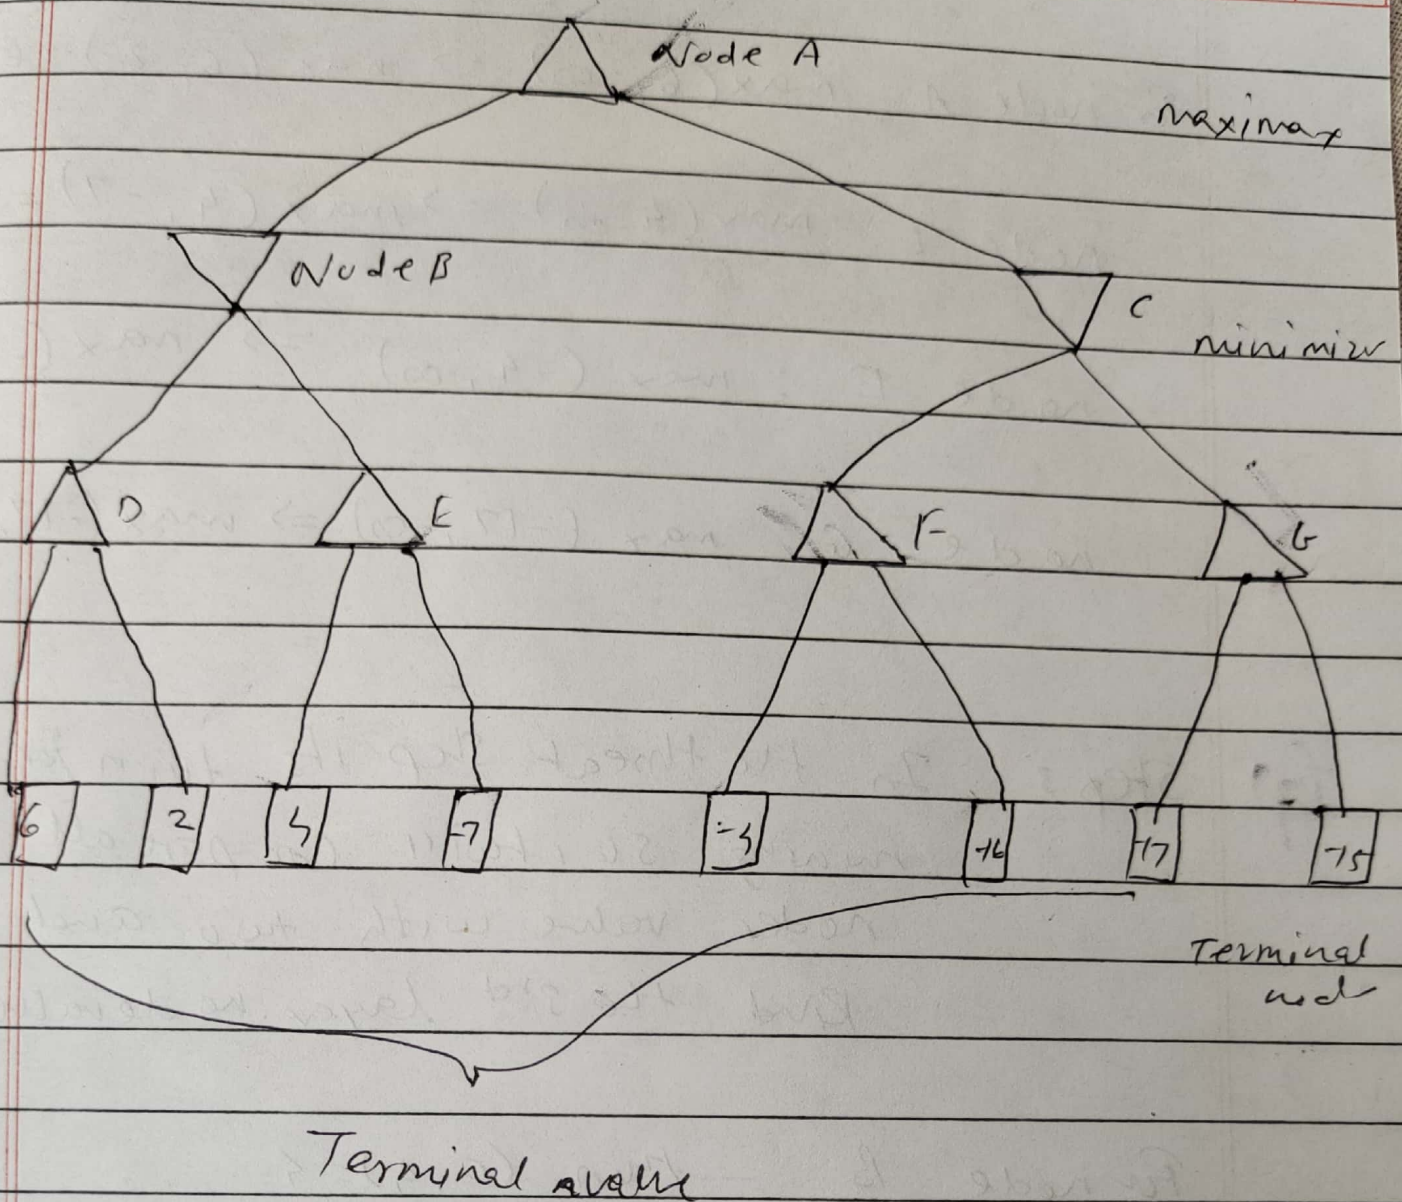 Node A
maximax
Node B
C
minimizr
D E F G
6 2 4 -7 -4 -16 -17 -15
Terminal
Terminal